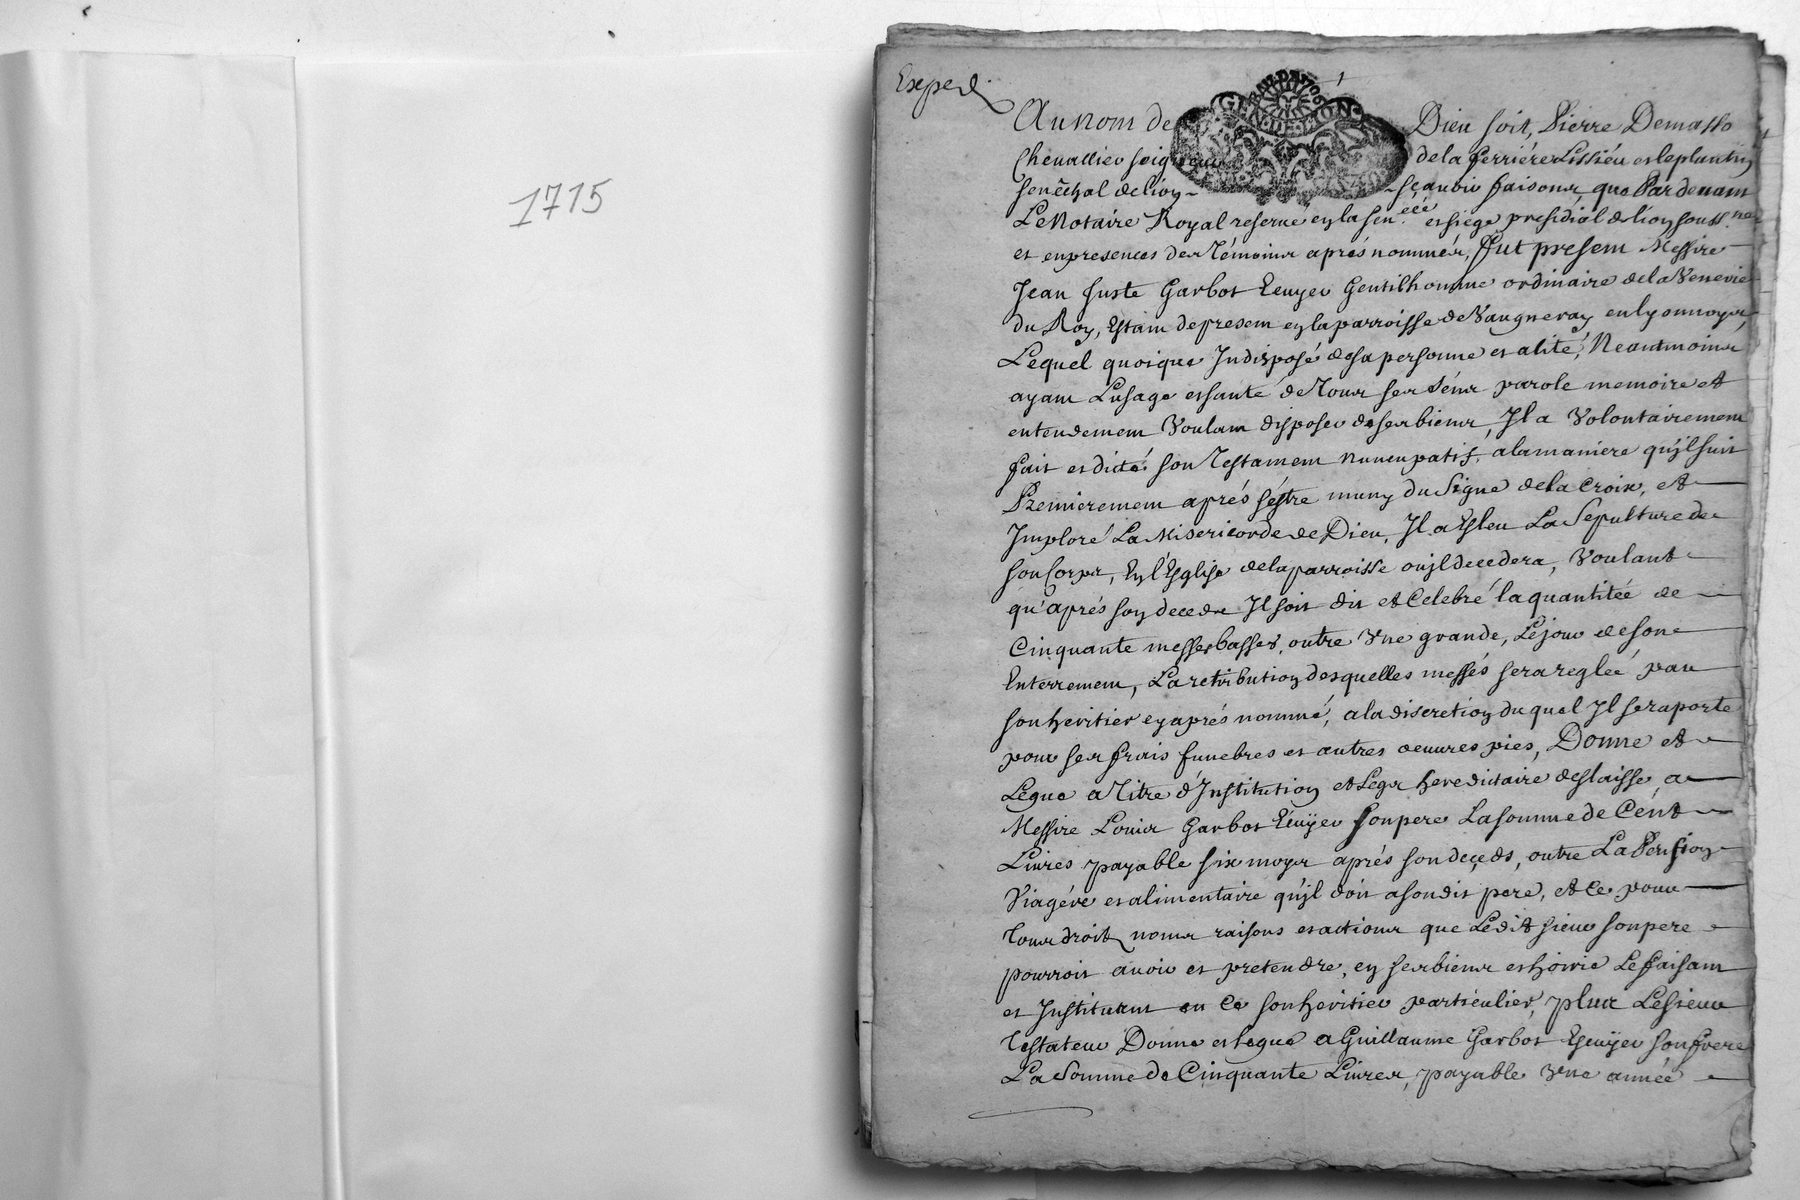 1715
Exped.
GEN. DE LYON
Au nom de Dieu soit, Pierre Demasso
Chevallier seigneur de la ferriére Lissieu et le plantin
senêchal de Lion sçavoir faisons, que Pardevant
Le Notaire Royal reservé en la sen.ceé et siege presidial de lion souss.né
et en presences des Témoins aprés nommés, fut present Messire
Jean Juste Garbot Ecuyer Gentilhomme ordinaire de la Venerie
du Roy, Estant de present en la parroisse de Vaugneray en lyonnoys,
Lequel quoique Indisposé de sa personne et alité, Neantmoins
ayant L'usage et santé de Tous ses séns parole memoire et
entendement Voulant disposer de ses biens, Il a Volontairement
fait et dicté son Testament nuncupatif, a la maniere qu'jl suit
Premierement aprés s'éstre muny du Signe de la Croix, et
Imploré La Misericorde de Dieu, Il a Esleu La Sepulture de
son Corps, En l'Esglise de la parroisse ou jl decedera, Voulant
qu'aprés son decedz Il soit dit et Celebré la quantitée de
Cinquante messes basses, outre Vne grande, Le jour de son
Enterrement, La retribution desquelles messés sera regleé par
son heritier cy aprés nommé, a la discretion du quel Il se raporte
pour ses frais funebres et autres oeuvres pies, Donne et
Legue a Titre d'Institution et Legs hereditaire deslaisse a
Messire Louis Garbot Ecuÿer son pere La somme de Cent
Livres payable six moys aprés son deçeds, outre La Pension
Viagére et alimentaire qu'jl doit a sondit pere, et ce pour
Tous droits noms raisons et actions que Ledit sieur son pere
pourroit avoir et pretendre, en ses biens et hoirie Le faisant
et Instituant en ce son heritier particulier, plus Le sieur
Testateur Donne et legue a Guillaume Garbot Escuÿer son frere
La Somme de Cinquante Livres, payable Vne année